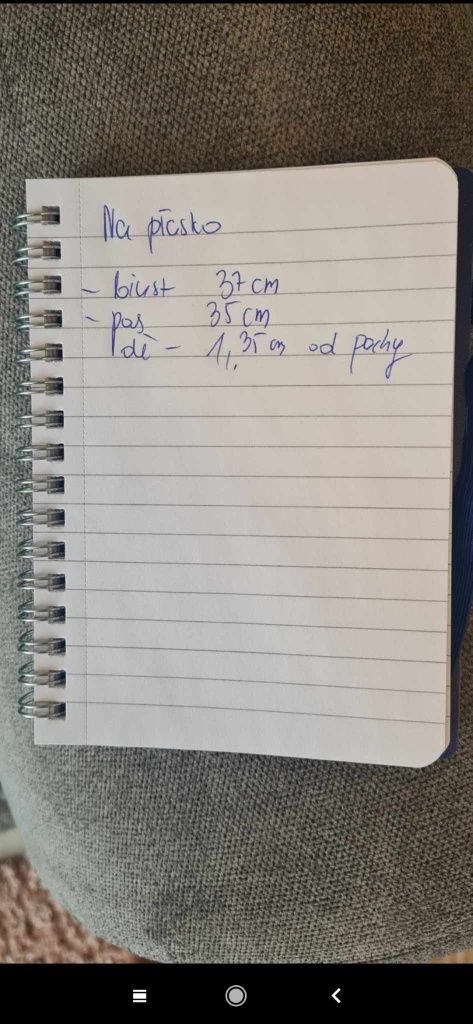 Na płasko
- biust 37 cm
- pas 35 cm
dł - 1,35 cm od pachy